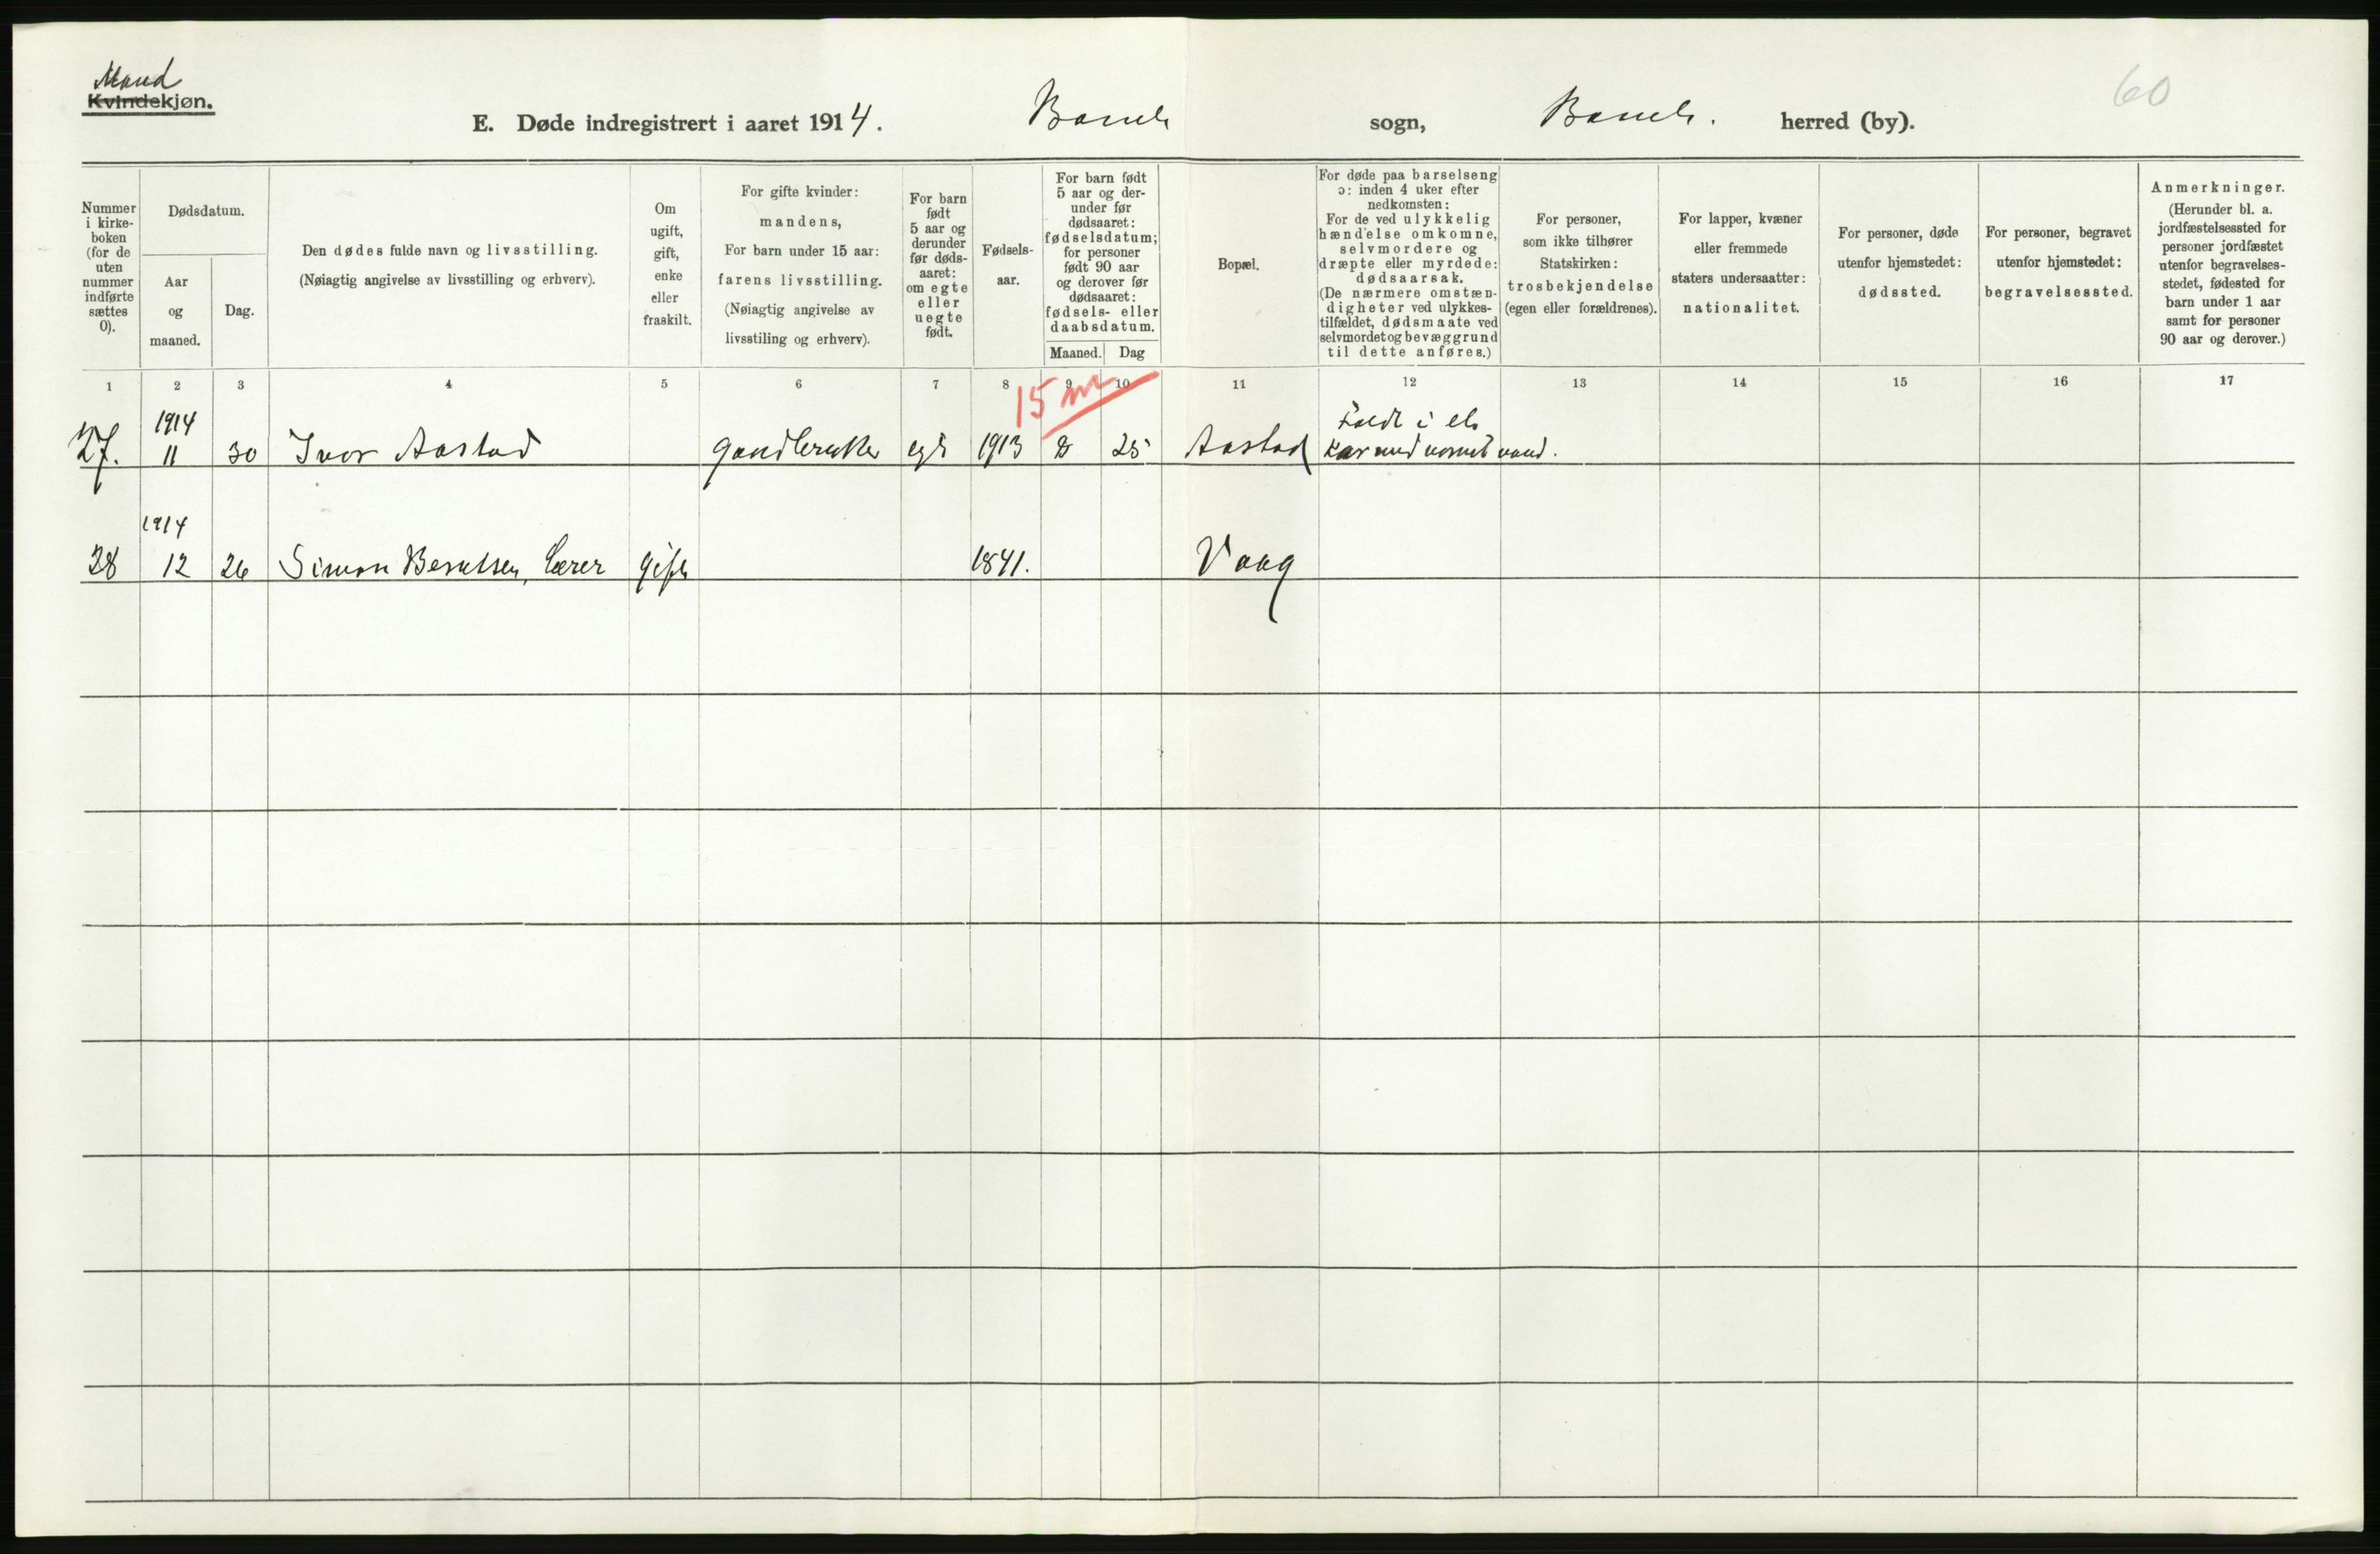 Mand
Kvindekjøn.
E. Døde indregistrert i aaret 1914. Bamle sogn, Bamle. herred (by).
60
Nummer i kirke- boken (for de uten nummer indførte sættes 0).
Dødsdatum.
Aar og maaned.
Dag.
Den dødes fulde navn og livsstilling.
(Nøiagtig angivelse av livsstilling og erhverv).
Om ugift, gift, enke eller fraskilt.
For gifte kvinder:
mandens,
For barn under 15 aar:
farens livsstilling.
(Nøiagtig angivelse av
livsstiling og erhverv).
For barn født 5 aar og derunder før døds- aaret: om egte eller uegte født.
Fødsels- aar.
For barn født
5 aar og der-
under før
dødsaaret:
fødselsdatum;
for personer
født 90 aar
og derover før
dødsaaret:
fødsels- eller
daabsdatum.
Maaned. Dag
Bopæl.
For døde paa barselseng
ɔ: inden 4 uker efter
nedkomsten:
For de ved ulykkelig
hændelse omkomne,
selvmordere og
dræpte eller myrdede:
dødsaarsak.
(De nærmere omstæn-
digheter ved ulykkes-
tilfældet, dødsmaate ved
selvmordet og bevæggrund
til dette anføres.)
For personer,
som ikke tilhører
Statskirken:
trosbekjendelse
(egen eller forældrenes).
For lapper, kvæner
eller fremmede
staters undersaatter:
nationalitet.
For personer, døde
utenfor hjemstedet:
dødssted.
For personer, begravet
utenfor hjemstedet:
begravelsessted.
Anmerkninger.
(Herunder bl. a.
jordfæstelsessted for
personer jordfæstet
utenfor begravelses-
stedet, fødested for
barn under 1 aar
samt for personer
90 aar og derover.)
1 2 3 4 5 6 7 8 9 10 11 12 13 14 15 16 17
15 m
1914 Faldt i et
27. 11 30 Ivar Aastad gaardbruker egte 1913 8 25 Aastad kar med varmt vand.
1914
28 12 26 Simon Berntsen, lærer gift 1841. Vaag